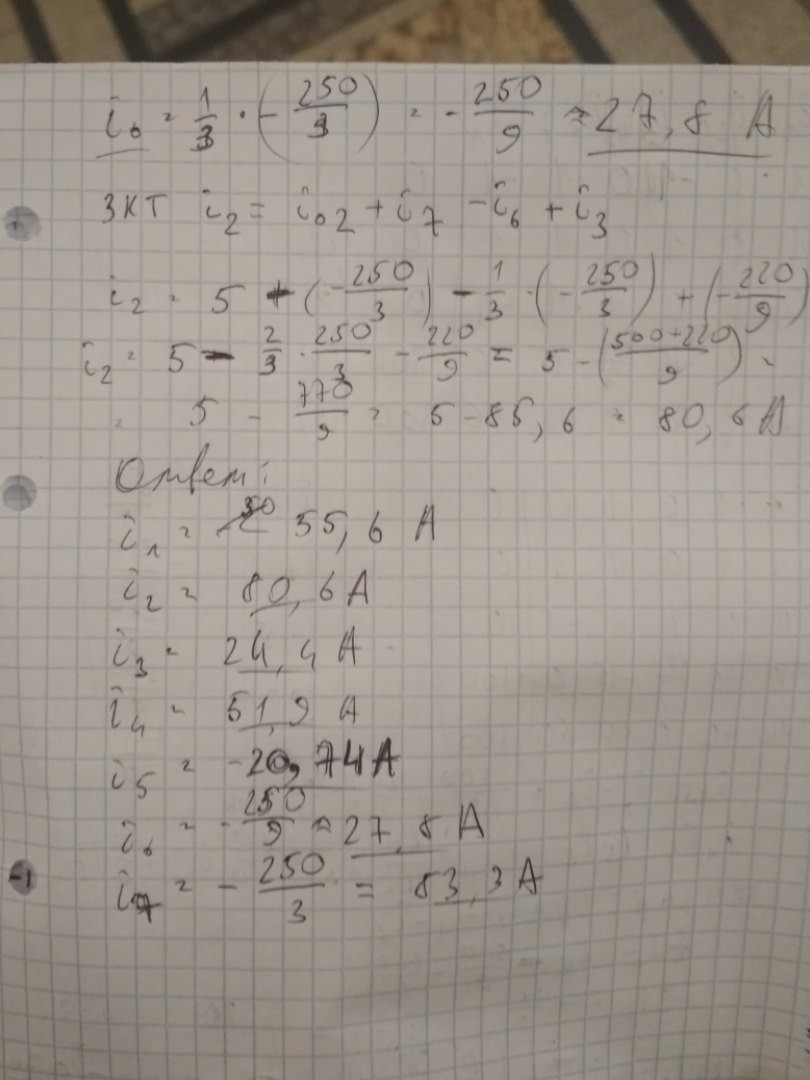 i₆ = 1/3 · (- 250/3) = - 250/9 ≈ 27,8 А
ЗКТ i₂ = i₀₂ + i₇ - i₆ + i₃
i₂ = 5 + (- 250/3) - 1/3 · (- 250/3) + (- 220/9)
i₂ = 5 - 2/3 · 250/3 - 220/9 = 5 - (500+220/9) =
= 5 - 770/9 = 5 - 85,6 = 80,6 А
Ответ:
i₁ = 55,6 А
i₂ = 80,6 А
i₃ = 24,4 А
i₄ = 51,9 А
i₅ = -20,74 А
i₆ = - 250/9 ≈ 27,8 А
i₇ = - 250/3 = 83,3 А